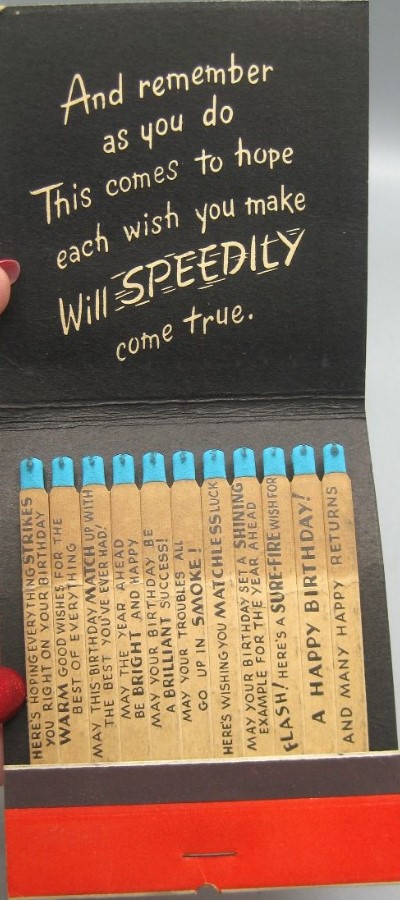 And remember
as you do
This comes to hope
each wish you make
Will SPEEDILY
come true.
HERE'S HOPING EVERYTHING STRIKES
YOU RIGHT ON YOUR BIRTHDAY
WARM GOOD WISHES FOR THE
BEST OF EVERYTHING
MAY THIS BIRTHDAY MATCH UP WITH
THE BEST YOU'VE EVER HAD!
MAY THE YEAR AHEAD
BE BRIGHT AND HAPPY
MAY YOUR BIRTHDAY BE
A BRILLIANT SUCCESS!
MAY YOUR TROUBLES ALL
GO UP IN SMOKE!
HERE'S WISHING YOU MATCHLESS LUCK
MAY YOUR BIRTHDAY SET A SHINING
EXAMPLE FOR THE YEAR AHEAD
FLASH! HERE'S A SURE-FIRE WISH FOR
A HAPPY BIRTHDAY!
AND MANY HAPPY RETURNS